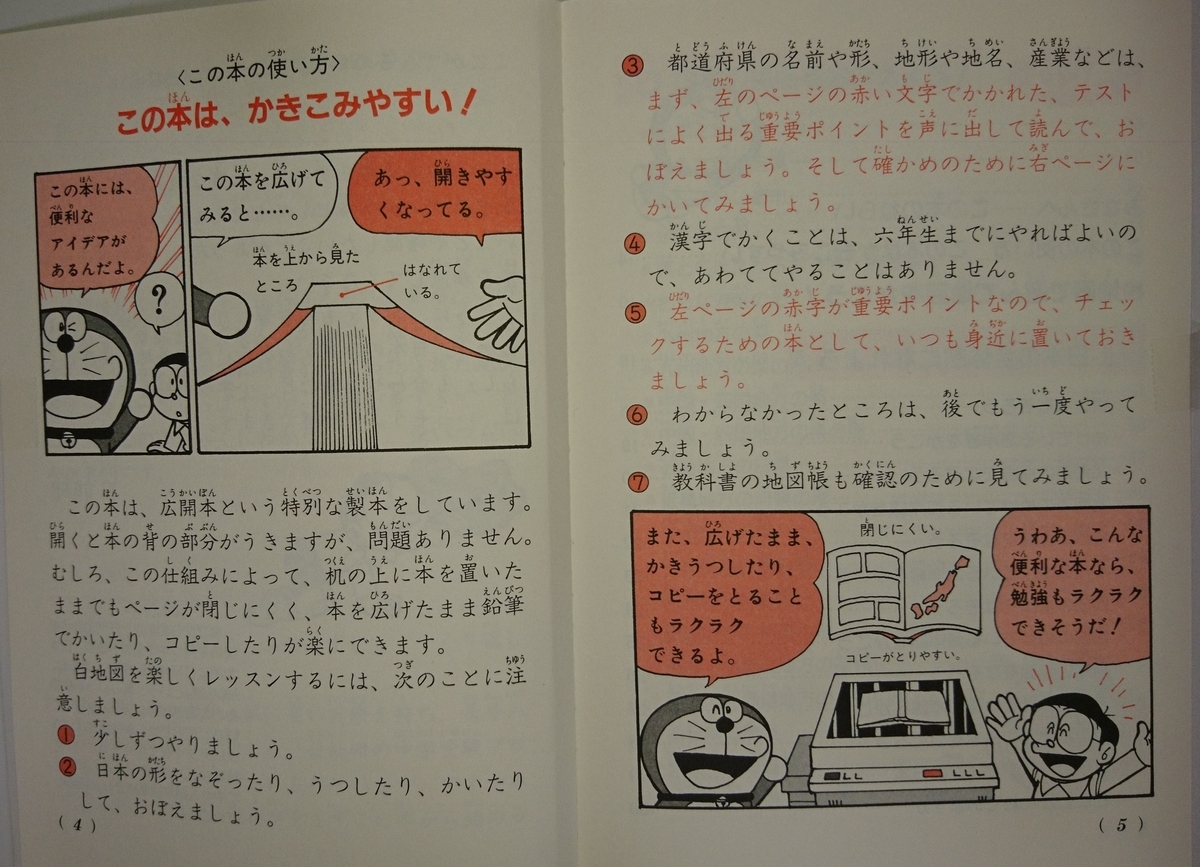 〈この本の使い方〉
この本は、かきこみやすい！
この本には、
便利な
アイデアが
あるんだよ。
？
この本を広げて
みると……。
あっ、開きやす
くなってる。
本を上から見た
ところ
はなれて
いる。
この本は、広開本という特別な製本をしています。
開くと本の背の部分がうきますが、問題ありません。
むしろ、この仕組みによって、机の上に本を置いた
ままでもページが閉じにくく、本を広げたまま鉛筆
でかいたり、コピーしたりが楽にできます。
白地図を楽しくレッスンするには、次のことに注
意しましょう。
① 少しずつやりましょう。
② 日本の形をなぞったり、うつしたり、かいたり
して、おぼえましょう。
(4)
③ 都道府県の名前や形、地形や地名、産業などは、
まず、左のページの赤い文字でかかれた、テスト
によく出る重要ポイントを声に出して読んで、お
ぼえましょう。そして確かめのために右ページに
かいてみましょう。
④ 漢字でかくことは、六年生までにやればよいの
で、あわててやることはありません。
⑤ 左ページの赤字が重要ポイントなので、チェッ
クするための本として、いつも身近に置いておき
ましょう。
⑥ わからなかったところは、後でもう一度やって
みましょう。
⑦ 教科書の地図帳も確認のために見てみましょう。
また、広げたまま、
かきうつしたり、
コピーをとること
もラクラク
できるよ。
閉じにくい。
コピーがとりやすい。
うわあ、こんな
便利な本なら、
勉強もラクラク
できそうだ！
(5)